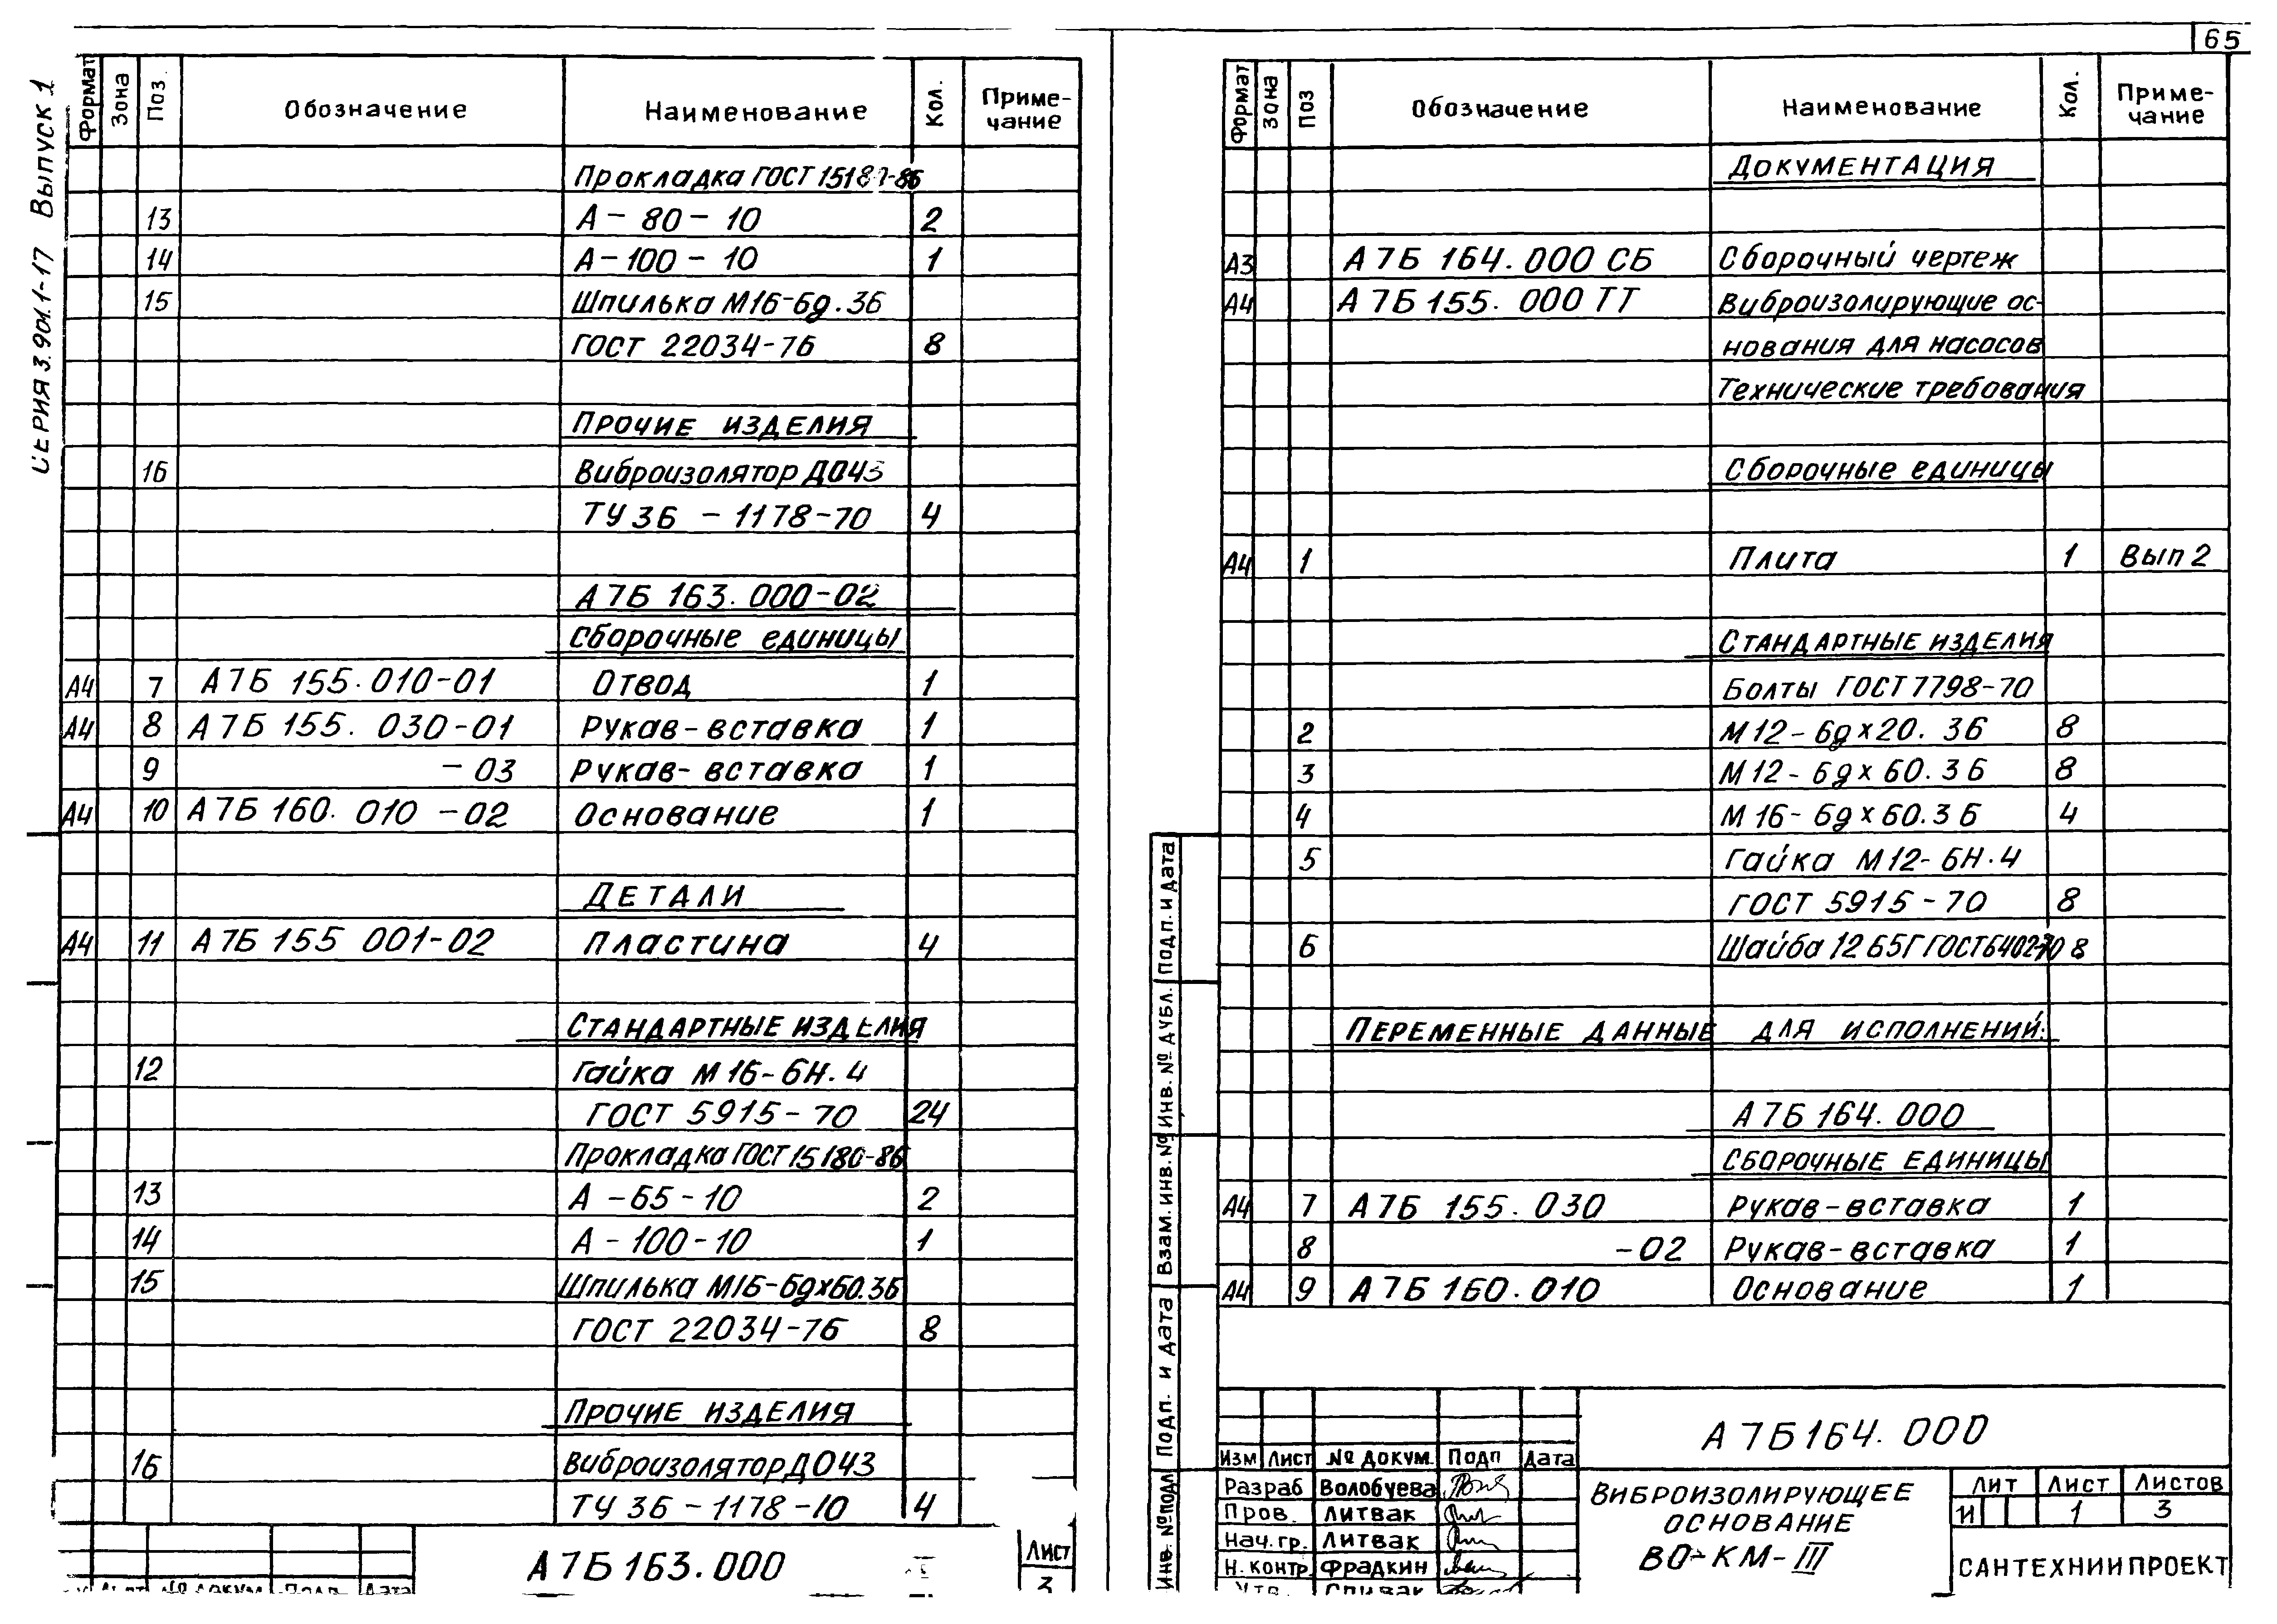 65
СЕРИЯ 3.901.1-17 Выпуск 1
Формат Зона Поз. Обозначение Наименование Кол. Приме-чание
Прокладка ГОСТ 15180-86
13 А-80-10 2
14 А-100-10 1
15 Шпилька М16-6g.36
ГОСТ 22034-76 8
ПРОЧИЕ ИЗДЕЛИЯ
16 Виброизолятор ДО43
ТУ 36-1178-70 4
А7Б 163.000-02
Сборочные единицы
А4 7 А7Б 155.010-01 Отвод 1
А4 8 А7Б 155.030-01 Рукав-вставка 1
9 -03 Рукав-вставка 1
А4 10 А7Б 160.010-02 Основание 1
ДЕТАЛИ
А4 11 А7Б 155 001-02 Пластина 4
СТАНДАРТНЫЕ ИЗДЕЛИЯ
12 Гайка М16-6Н.4
ГОСТ 5915-70 24
Прокладка ГОСТ 15180-86
13 А-65-10 2
14 А-100-10 1
15 Шпилька М16-6gх60.36
ГОСТ 22034-76 8
ПРОЧИЕ ИЗДЕЛИЯ
16 Виброизолятор ДО43
ТУ 36-1178-10 4
№ докум. Подп. Дата
А7Б163.000
Лист
3
Формат Зона Поз Обозначение Наименование Кол. Приме-чание
ДОКУМЕНТАЦИЯ
А3 А7Б 164.000 СБ Сборочный чертеж
А4 А7Б 155.000 ТТ Виброизолирующие ос-
нования для насосов
Технические требования
Сборочные единицы
А4 1 Плита 1 Вып 2
СТАНДАРТНЫЕ ИЗДЕЛИЯ
Болты ГОСТ 7798-70
2 М12-6gх20.36 8
3 М12-6gх60.36 8
4 М16-6gх60.36 4
5 Гайка М12-6Н.4
ГОСТ 5915-70 8
6 Шайба 12 65Г ГОСТ 6402-70 8
ПЕРЕМЕННЫЕ ДАННЫЕ ДЛЯ ИСПОЛНЕНИЙ:
А7Б 164.000
СБОРОЧНЫЕ ЕДИНИЦЫ
А4 7 А7Б 155.030 Рукав-вставка 1
8 -02 Рукав-вставка 1
А4 9 А7Б 160.010 Основание 1
Подп. и дата
Инв. № дубл.
Взам. инв. №
Подп. и дата
Инв. № подл
Изм Лист № докум. Подп Дата
Разраб Волобуева
Пров. Литвак
Нач.гр. Литвак
Н.контр. Фрадкин
Утв. Спивак
А7Б164.000
ВИБРОИЗОЛИРУЮЩЕЕ
ОСНОВАНИЕ
ВО-КМ-III
Лит Лист Листов
И 1 3
САНТЕХНИИПРОЕКТ